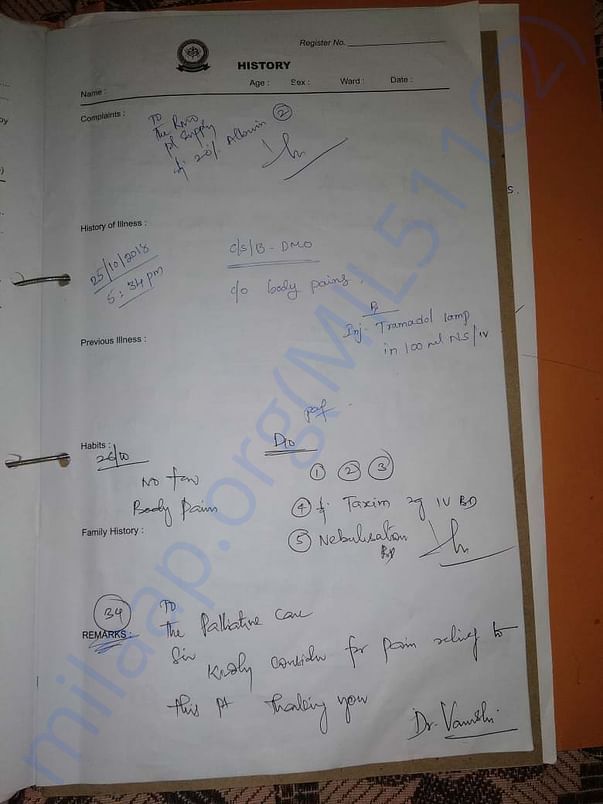 Register No.
HISTORY
Name : Age : Sex : Ward : Date :
Complaints :
TO
the RMO
pl supply
Inj 20% Albumin ②
History of Illness :
25/10/2018
5:34 pm
C/S/B - DMO
c/o body pains.
Rx
Inj- Tramadol 1amp
in 100 ml NS/IV
Previous Illness :
Habits :
26/10
D10
No fever
Body Pains
① ② ③
④ Inj Taxim 2g IV BD
Family History :
⑤ Nebulisation
34
REMARKS :
TO
the Palliative Care
Sir
Kindly consider for pain relief to
this pt thanking you
Dr. Vamshi
milaap.org(MIL51162)